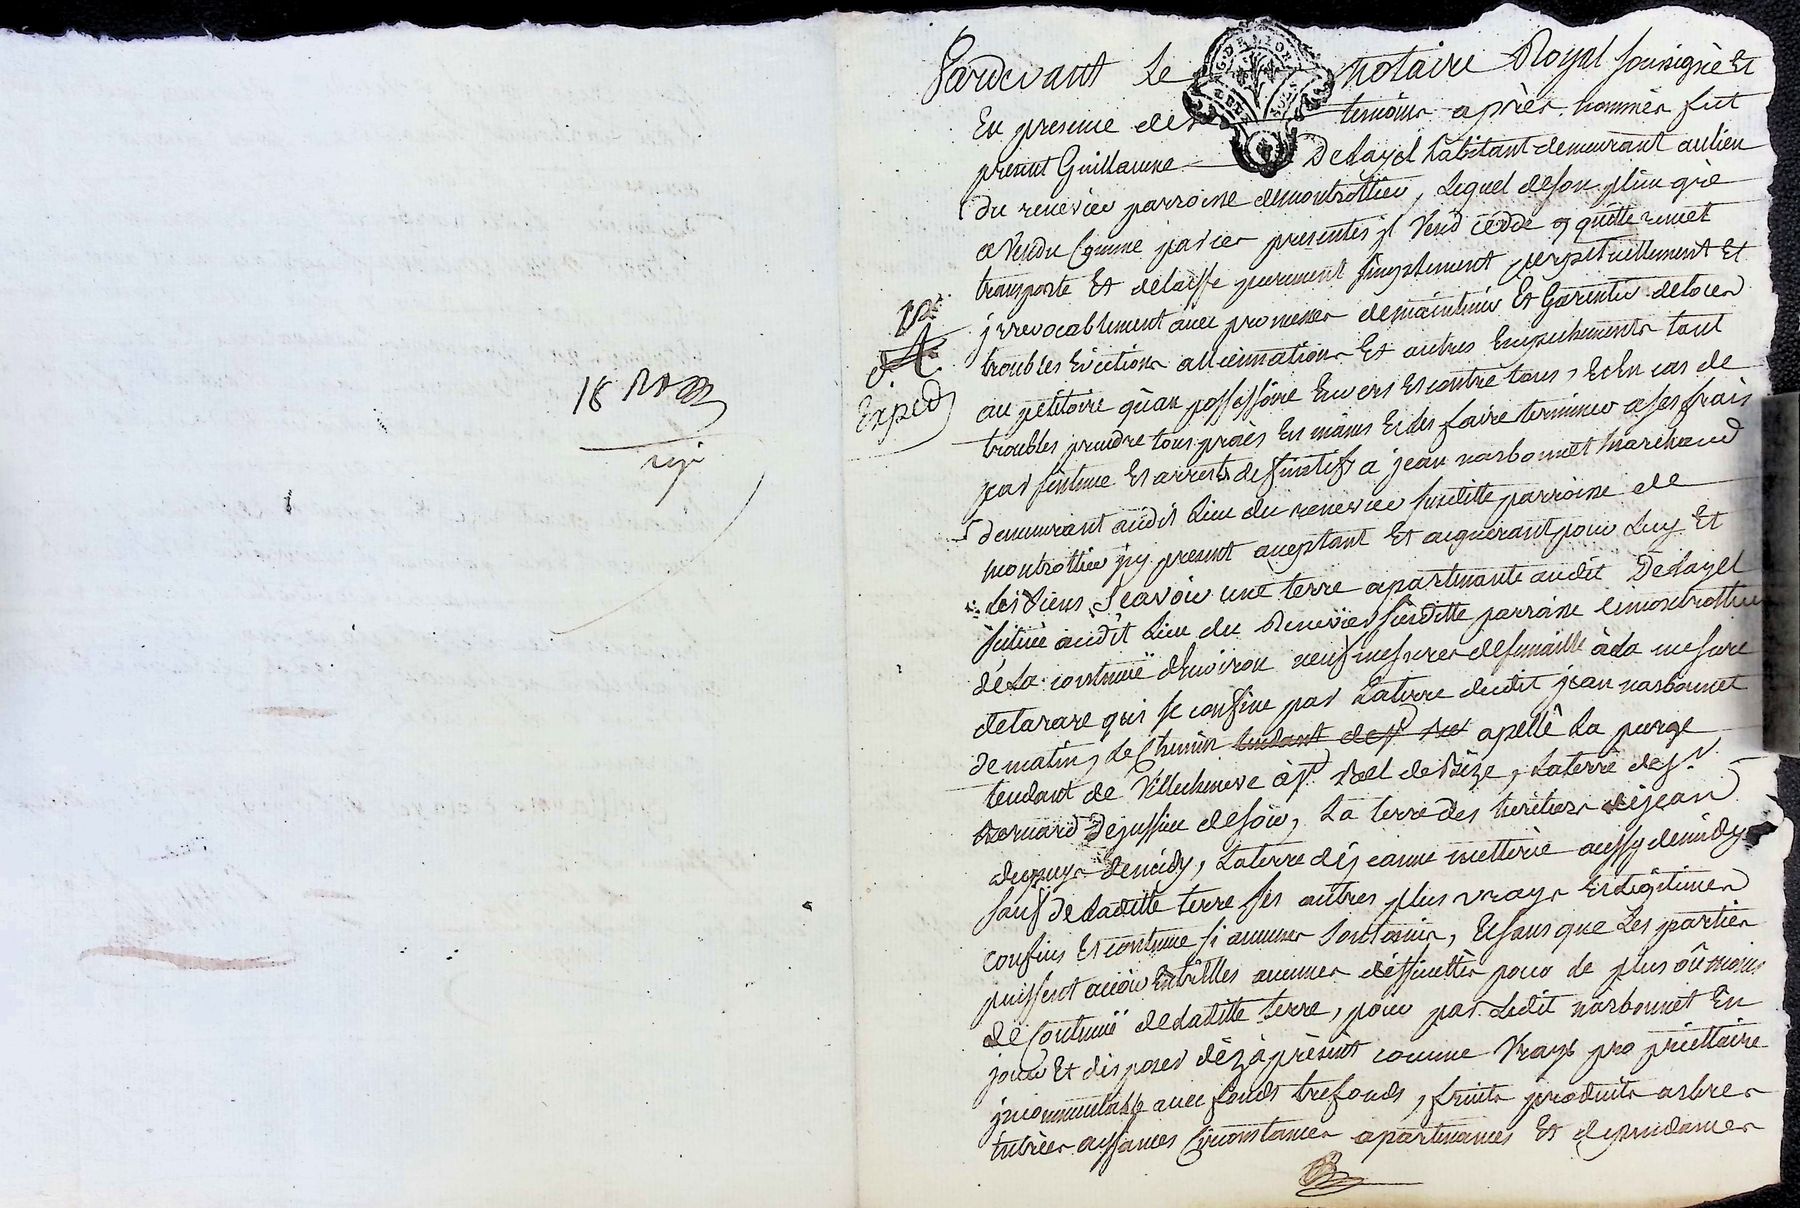 Pardevant Le notaire Royal soussigné Et
En presence des temoins après nommés fut
present Guillaume Delayel habitant demeurant au lieu
du renevier parroisse demontrottier, Lequel deson plein gré
a Vendu Comme par ces presentes jl Vend cedde quitte remet
transporte Et delaisse purement simplement perpetuellement Et
jrrevocablement avec promesses demaintenir Et Garentir detous
troubles Evictions allienations Et autres Empechements tant
au petitoire qu'au possessoire Envers Et contre tous, Et En cas de
troubles prendre tous procès En mains Et les faire terminer a ses frais
par sentence Et arrests definitifs a jean narbonnet Marchand
demeurant audit Lieu du renevier susditte parroisse de
montrottier jcy present aceptant Et aquerant pour Luy Et
les siens Scavoir une terre apartenante audit Delayel
située audit Lieu du Renevier susditte parroisse demontrottier
de La contenuë d'Environ neuf mesures desemaille à la mesure
detarare qui se confine par La terre dudit jean narbonnet
de matin, Le Chemin tendant de apellé La purge
tendant de Villecheneve à st. bel de bize, La terre de sr.
bernard Dejussieu desoir, La terre des heritiers de jean
dupuy demidy, La terre de jeanne metterie aussy demidy
sauf De Laditte terre ses autres plus vrays Et Legitimes
confins Et contenue si aucunes sont, Et sans que Les parties
puissent avoir Entr'elles aucunes difficultés pour de plus ou moins
de Contenuë de laditte terre, pour par Ledit narbonnet En
jouir Et disposer dèz à présent comme Vrays proprieттaire
jncommutable avec fonds trefonds, fruits produits arbres
Entrées aissances Circonstances apartenances Et dependances
18
Exped